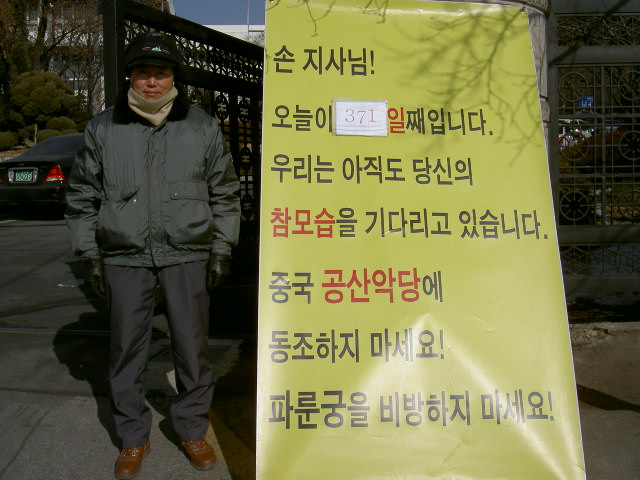 손 지사님!
오늘이 371 일째입니다.
우리는 아직도 당신의
참모습을 기다리고 있습니다.
중국 공산악당에
동조하지 마세요!
파룬궁을 비방하지 마세요!